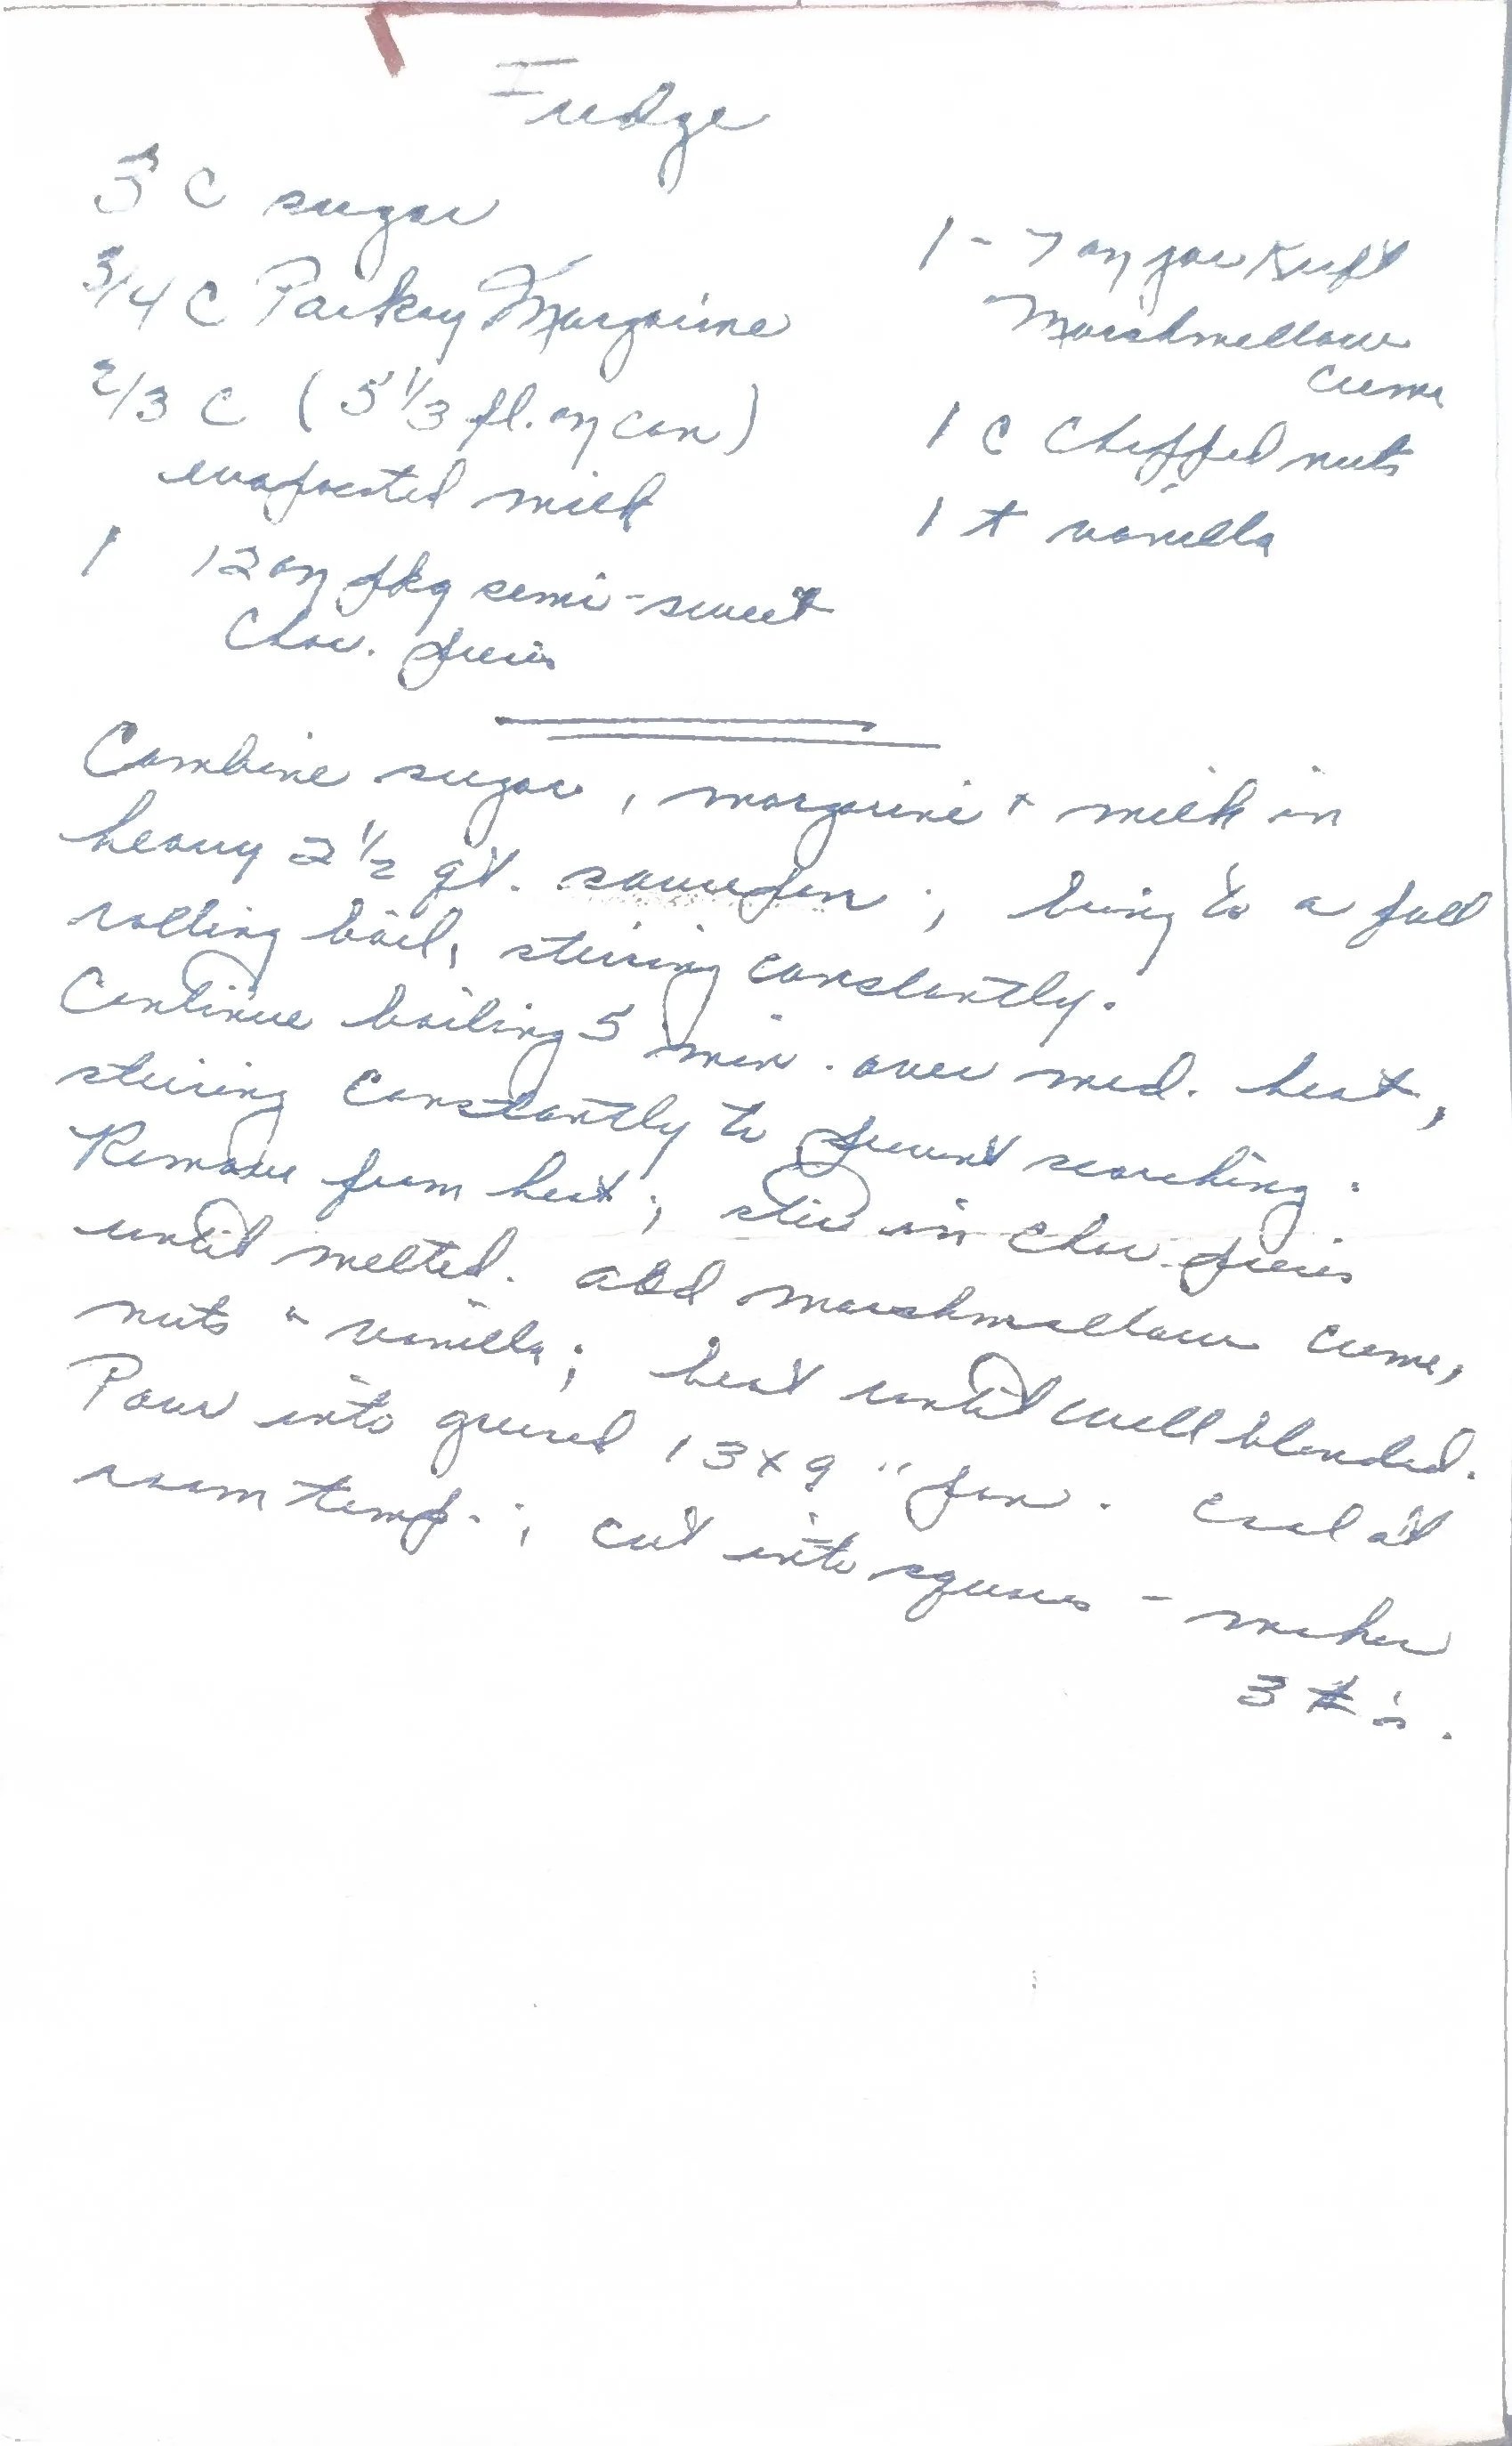 Fudge
3 C sugar
3/4 C Parkay Margarine
2/3 C (5 1/3 fl. oz can)
evaporated milk
1 12 oz pkg semi-sweet
Choc. pieces
1 - 7 oz jar Kraft
Marshmellow
creme
1 C Chopped nuts
1 t vanilla
Combine sugar, margarine + milk in
heavy 2 1/2 qt. saucepan; bring to a full
rolling boil, stirring constantly.
Continue boiling 5 min. over med. heat,
stirring constantly to prevent scorching.
Remove from heat; stir in choc pieces
until melted. add marshmellow creme,
nuts & vanilla; beat until well blended.
Pour into greased 13 x 9" pan. Cool at
room temp.; cut into squares - makes
3 #'s.